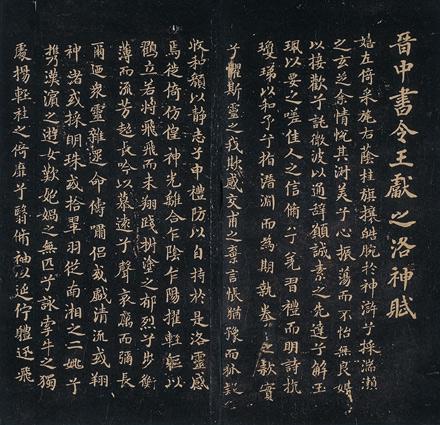 晉中書令王獻之洛神賦
嬉左倚采旄右蔭桂旗攘皓腕於神滸兮採湍瀨
之玄芝余情悅其淑美兮心振蕩而不怡無良媒
以接歡兮託微波以通辭願誠素之先達兮解玉
珮以要之嗟佳人之信脩兮羌習禮而明詩抗
瓊珶以和予兮指潛淵而為期執眷〻之款實
兮懼斯靈之我欺感交甫之棄言悵猶豫而狐疑
收和顏以靜志兮申禮防以自持於是洛靈感
焉徙倚彷徨神光離合乍陰乍陽擢輕軀以
鶴立若將飛飛而未翔踐椒塗之郁烈兮步蘅
薄而流芳超長吟以慕遠兮聲哀厲而彌長
爾迺衆靈雜遝命儔嘯侶或戲清流或翔
神渚或採明珠或拾翠羽從南湘之二姚兮
攜漢濱之遊女歎匏媧之無匹兮詠牽牛之獨
處揚輕袿之倚靡兮翳脩袖以延佇體迅飛